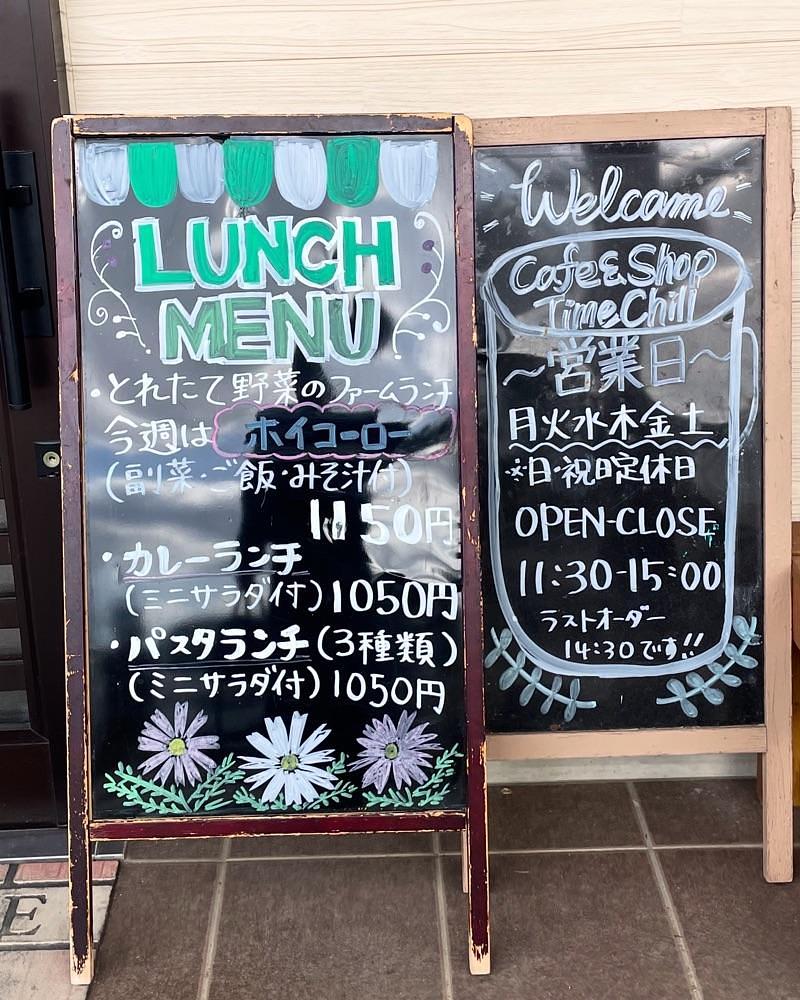 LUNCH
MENU
・とれたて野菜のファームランチ
今週は ホイコーロー
(副菜・ご飯・みそ汁付)
1150円
・カレーランチ
(ミニサラダ付)1050円
・パスタランチ(3種類)
(ミニサラダ付)1050円
Welcame
Cafe&Shop
Time Chill
～営業日～
月火水木金土
※日・祝日定休日
OPEN-CLOSE
11:30-15:00
ラストオーダー
14:30です!!
E